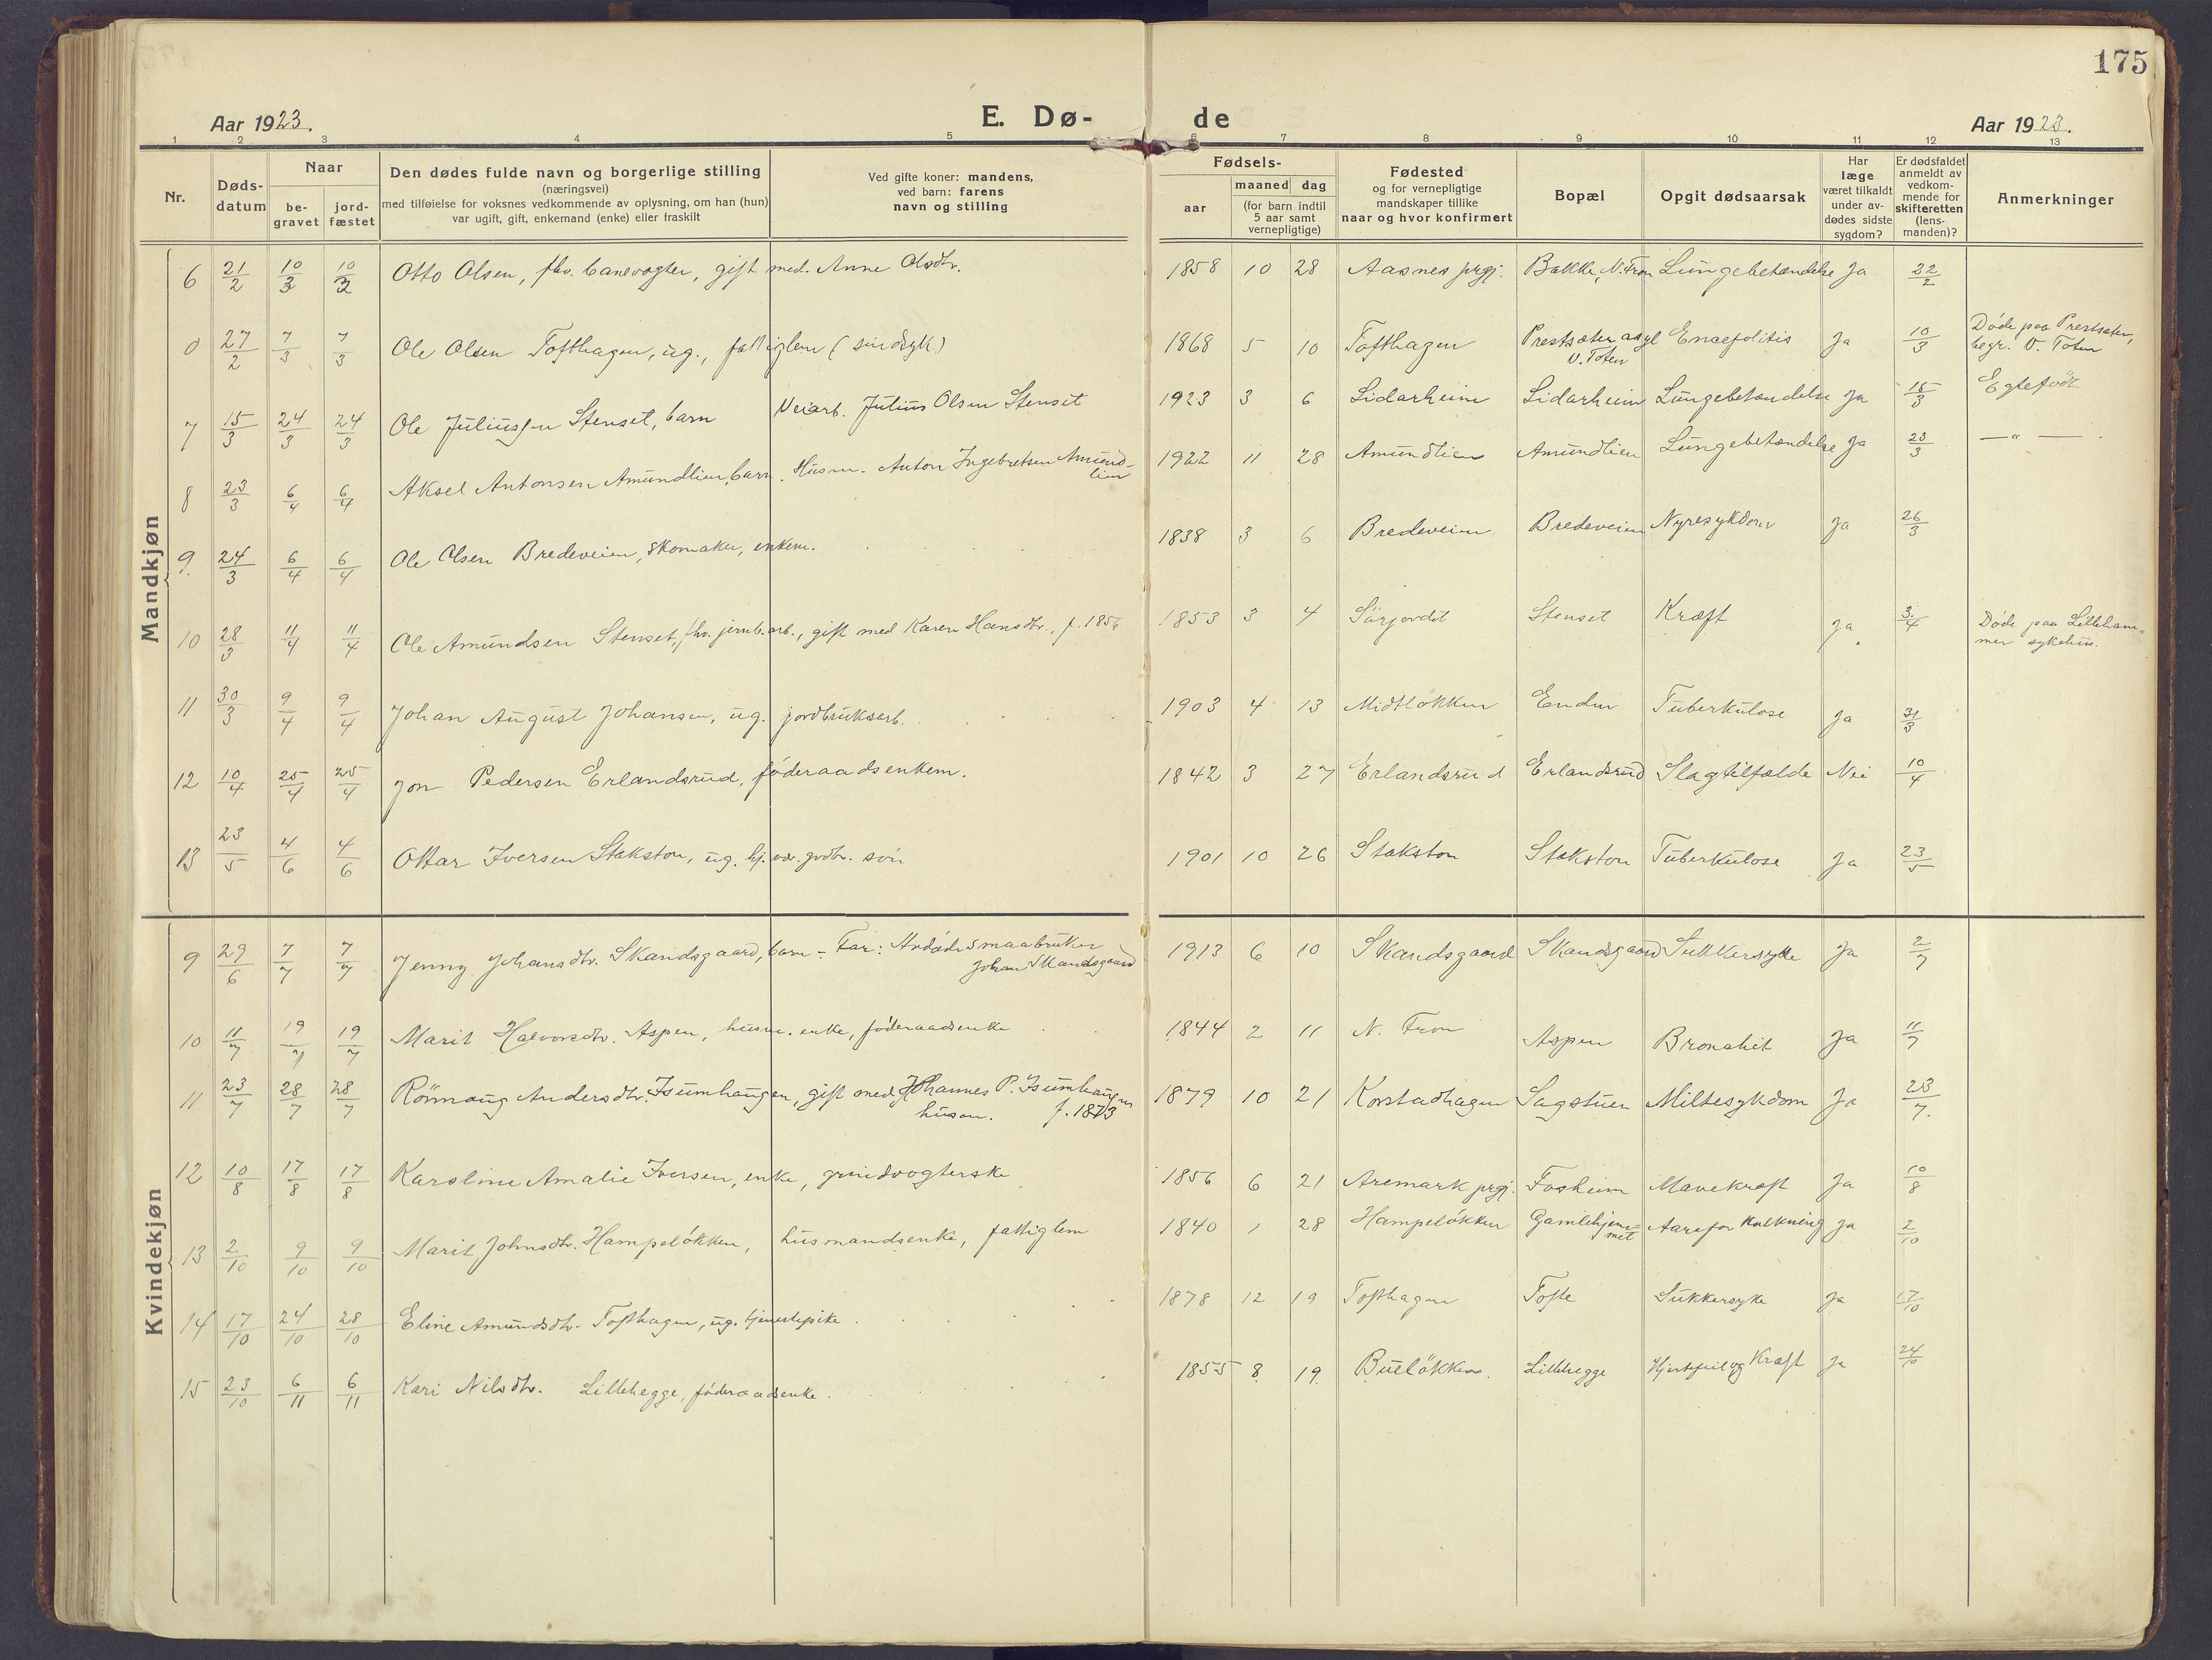 175
Aar 1923. E. Dø- de Aar 1923.
1 2 3 4 5 6 7 8 9 10 11 12 13
Nr.
Døds-
datum
Naar
be-
gravet
jord-
fæstet
Den dødes fulde navn og borgerlige stilling
(næringsvei)
med tilføielse for voksnes vedkommende av oplysning, om han (hun)
var ugift, gift, enkemand (enke) eller fraskilt
Ved gifte koner: mandens,
ved barn: farens
navn og stilling
Fødsels-
aar
maaned dag
(for barn indtil
5 aar samt
vernepligtige)
Fødested
og for vernepligtige
mandskaper tillike
naar og hvor konfirmert
Bopæl
Opgit dødsaarsak
Har
læge
været tilkaldt
under av-
dødes sidste
sygdom?
Er dødsfaldet
anmeldt av
vedkom-
mende for
skifteretten
(lens-
manden)?
Anmerkninger
Mandkjøn
6 21/2 10/3 10/3 Otto Olsen, fhv. banevogter, gift med. Anne Olsdtr. 1858 10 28 Aasnes prgj. Bakke, N. Fron Lungebetændelse Ja 22/2
0 27/2 7/3 7/3 Ole Olsen Tofthagen, ug., fattiglem (sindsyk) 1868 5 10 Tofthagen Prestsæter asyl V. Toten Ja 10/3 Døde paa Prestsæter,
begr. V. Toten
7 15/3 24/3 24/3 Ole Juliussen Stenset, barn Veiarb. Julius Olsen Stenset 1923 3 6 Lidarheim Lidarheim Lungebetændelse Ja 15/3 Egtefødt
8 23/3 6/4 6/4 Aksel Antonsen Amundlien, barn. Husm. Anton Ingebretsen Amund-
lien 1922 11 28 Amundlien Amundlien Lungebetændelse Ja 23/3 — " —
9. 24/3 6/4 6/4 Ole Olsen Bredeveien, skomaker, enkem. 1838 3 6 Bredeveien Bredeveien Nyresykdom Ja 26/3
10 28/3 11/4 11/4 Ole Amundsen Stenset, fhv. jernb.arb., gift med Karen Hansdtr., f. 1856 1853 3 4 Sörjordet Stenset Kræft Ja. 3/4 Døde paa Lilleham-
mer sykehus.
11 30/3 9/4 9/4 Johan August Johansen, ug. jordbruksarb. 1903 4 13 Midtløkken Tuberkulose Ja 31/3
12 10/4 25/4 25/4 Jon Pedersen Erlandsrud, föderaadsenkem. 1842 3 27 Erlandsrud Erlandsrud Slagtilfælde Nei 10/4
13 23/5 4/6 4/6 Ottar Iversen Stakston, ug. hj.vær. grdbr. sön 1901 10 26 Stakston Stakston Tuberkulose Ja 23/5
Kvindekjøn
9 29/6 7/7 7/7 Jenny Johansdtr. Skandsgaard, barn - Far: Avdøde smaabruker
Johan Skandsgaard 1913 6 10 Skandsgaard Skandsgaard Sukkersyke Ja 2/7
10 11/7 19/7 19/7 Marit Halvorsdtr. Aspen, husm. enke, föderaadsenke 1844 2 11 N. Fron Aspen Bronchit Ja 11/7
11 23/7 28/7 28/7 Rönnaug Andersdtr. Isumhaugen, gift med Johannes P. Isumhaugen
husm. f. 1873 1879 10 21 Korstadhagen Sagstuen Miltesykdom Ja 23/7.
12 10/8 17/8 17/8 Karoline Amalie Iversen, enke, grindvogterske 1856 6 21 Aremark prgj. Fosheim Mavekræft Ja 10/8
13 2/10 9/10 9/10 Marit Johnsdtr. Hampeløkken, husmandsenke, fattiglem 1840 1 28 Hampeløkken Gamlehjem-
met Aareforkalkning Ja 2/10
14 17/10 24/10 28/10 Eline Amundsdtr. Tofthagen, ug. tjenestepike 1878 12 19 Tofthagen Tofte Sukkersyke Ja 17/10
15 23/10 6/11 6/11 Kari Nilsdtr. Lillehegge, föderaadsenke. 1855 8 19 Bueløkken. Lillehegge Hjertefeil og Kræft Ja 24/10